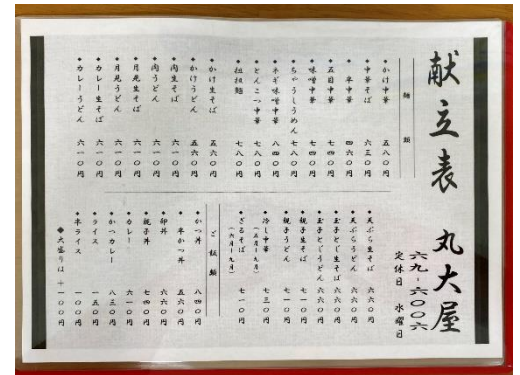 献立表 丸大屋
六九-六〇〇六
定休日 水曜日
麺類
・かけ中華 五八〇円
・中華そば 六三〇円
・半中華 四六〇円
・五目中華 七四〇円
・味噌中華 七四〇円
・ちゃうしうめん 七八〇円
・ネギ味噌中華 八四〇円
・とんこつ中華 七八〇円
・担担麺 七八〇円
・かけ生そば 五六〇円
・かけうどん 五六〇円
・肉生そば 六一〇円
・肉うどん 六一〇円
・月見生そば 六一〇円
・月見うどん 六一〇円
・カレー生そば 六一〇円
・カレーうどん 六一〇円
・天ぷら生そば 六六〇円
・天ぷらうどん 六六〇円
・玉子とじ生そば 六六〇円
・玉子とじうどん 六六〇円
・親子生そば 七一〇円
・親子うどん 七一〇円
・冷し中華 七三〇円
(五月~九月)
・ざるそば 七一〇円
(六月~九月)
ご飯類
・かつ丼 八四〇円
・半かつ丼 五六〇円
・卵丼 六六〇円
・親子丼 七四〇円
・カレー 六一〇円
・かつカレー 八三〇円
・ライス 一五〇円
・半ライス 一〇〇円
◆大盛りは+一〇〇円